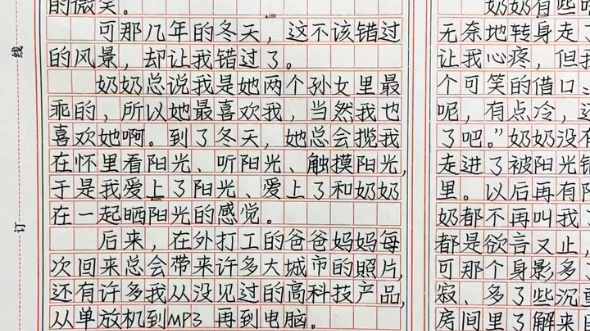 的微笑。
可那几年的冬天，这不该错过
的风景，却让我错过了。
奶奶总说我是她两个孙女里最
乖的，所以她最喜欢我，当然我也
喜欢她啊。到了冬天，她总会揽我
在怀里看阳光、听阳光、触摸阳光，
于是我爱上了阳光、爱上了和奶奶
在一起晒阳光的感觉。
后来，在外打工的爸爸妈妈每
次回来总会带来许多大城市的照片，
还有许多我从没见过的高科技产品，
从单放机到MP3再到电脑。
奶奶有些
无奈地转身走、
让我心疼，但我
个可笑的借口、
呢，有点冷，还
了吧。”奶奶没有
走进了被阳光
里。以后再有阳
奶都不再叫我了
都是欲言又止，
可那个身影多了
寂、多了些沉
房间里了解来自
线
订